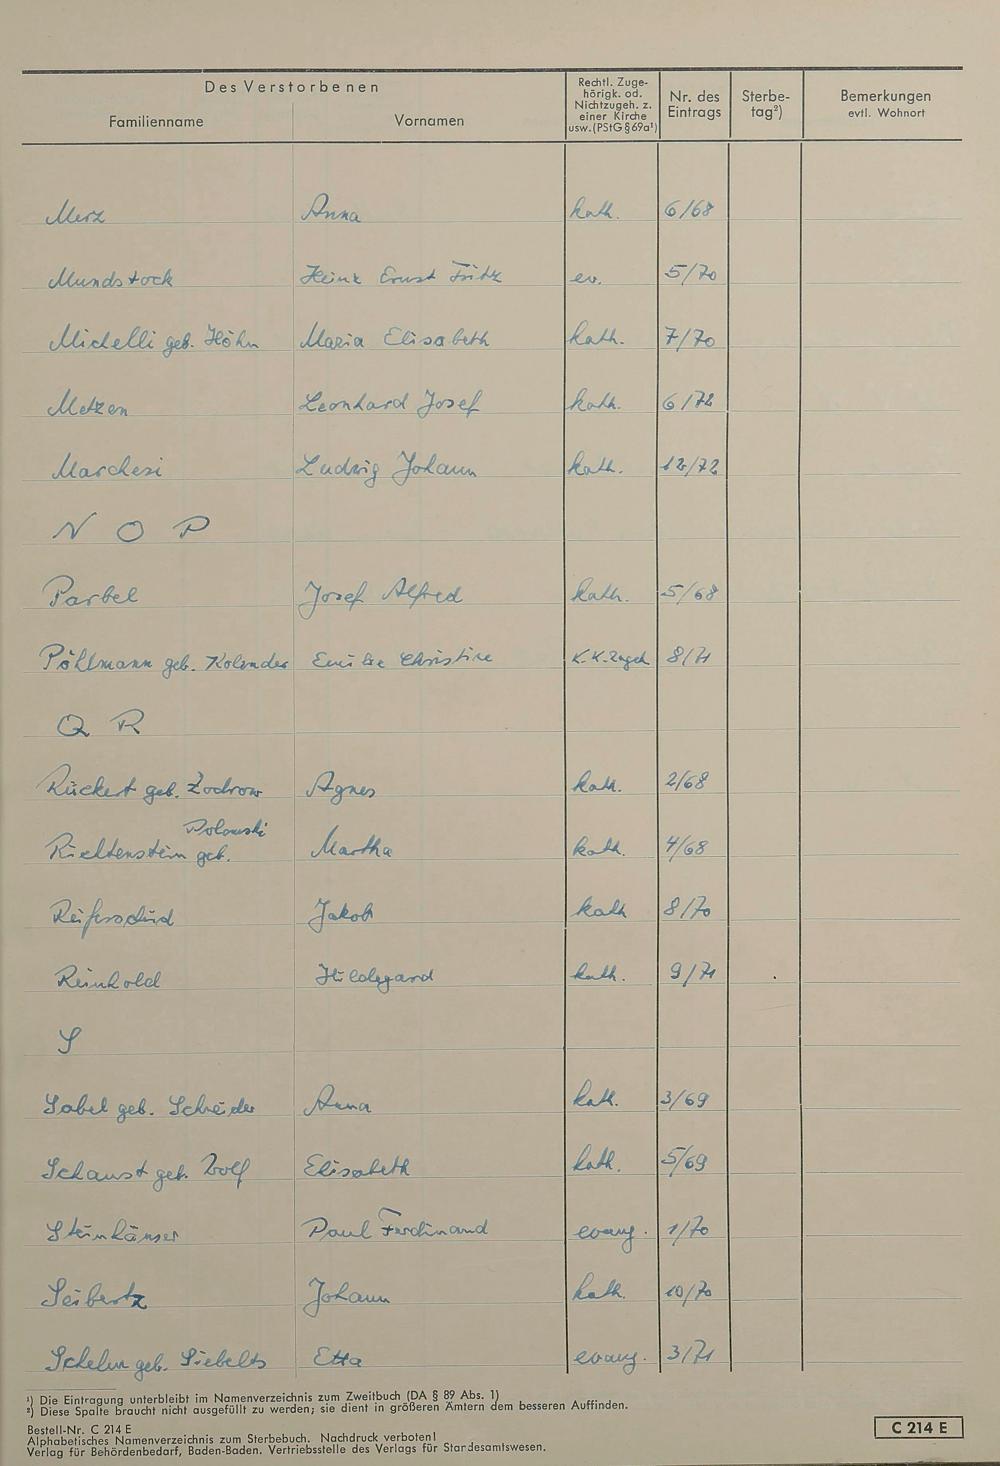 Des Verstorbenen
Familienname
Vornamen
Rechtl. Zuge-
hörigk. od.
Nichtzugeh. z.
einer Kirche
usw. (PStG § 69a¹)
Nr. des
Eintrags
Sterbe-
tag²)
Bemerkungen
evtl. Wohnort
Merz Anna kath. 6/68
Mundstock Heinz Ernst Fritz ev. 5/70
Michelli geb. Höhn Maria Elisabeth kath. 7/70
Metzen Leonhard Josef kath. 6/72
Marchesi Ludwig Johann kath. 12/72
N O P
Parbel Josef Alfred kath. 5/68
Pöhlmann geb. Kolander Emilie Christine K.K.Zugeh 8/71
Q R
Rückert geb. Zodrow Agnes kath. 2/68
Polowski
Richtenstein geb. Martha kath. 4/68
Reiferscheid Jakob kath 8/70
Reinhold Hildegard kath. 9/71
S
Sabel geb. Schneider Anna kath. 3/69
Schaust geb. Wolf Elisabeth kath. 5/69
Steinhäuser Paul Ferdinand evang. 1/70
Seibertz Johann kath. 10/70
Schelm geb. Siebelts Etta evang. 3/71
¹) Die Eintragung unterbleibt im Namenverzeichnis zum Zweitbuch (DA § 89 Abs. 1)
²) Diese Spalte braucht nicht ausgefüllt zu werden; sie dient in größeren Ämtern dem besseren Auffinden.
Bestell-Nr. C 214 E
Alphabetisches Namenverzeichnis zum Sterbebuch. Nachdruck verboten!
Verlag für Behördenbedarf, Baden-Baden. Vertriebsstelle des Verlags für Standesamtswesen.
C 214 E